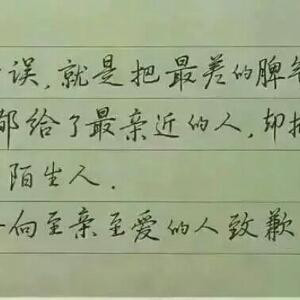 误,就是把最差的脾气
都给了最亲近的人,却把
陌生人.
向至亲至爱的人致歉